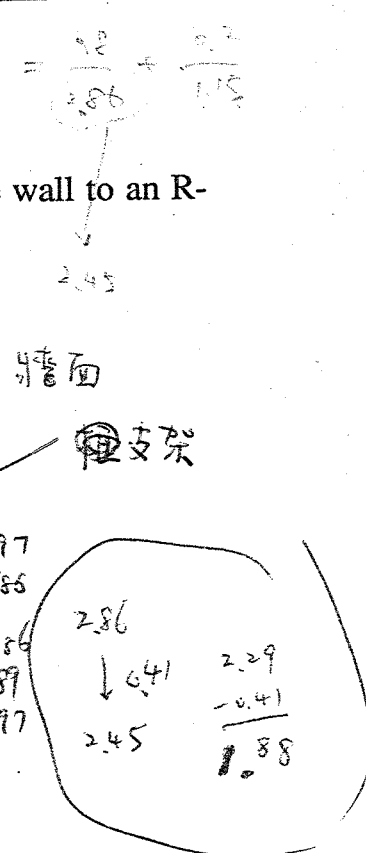 = .8/2.86 + 0.2/1.15
wall to an R-
2.45
牆面
支架
97
86
89
97
2.86
↓ 0.41
2.45
2.29
-0.41
1.88